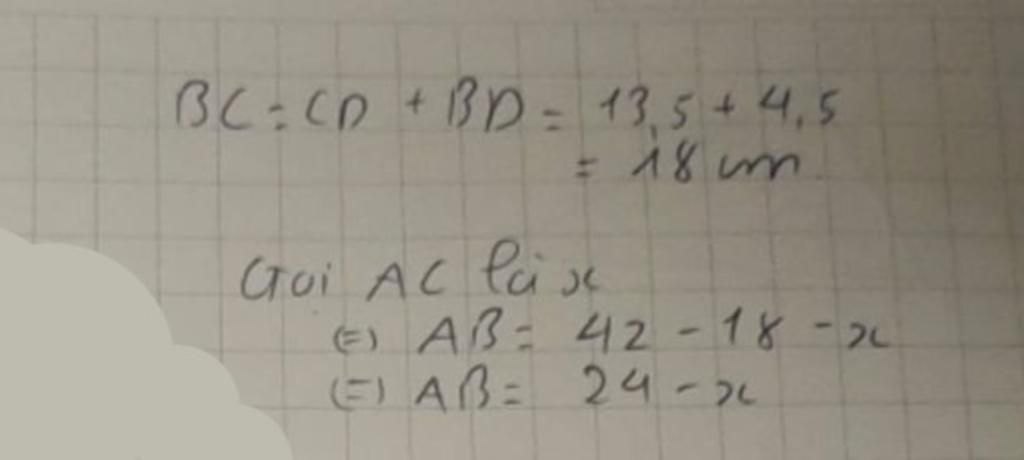 BC = CD + BD = 13,5 + 4,5
= 18 cm
Gọi AC là x
(=) AB = 42 - 18 - x
(=) AB = 24 - x